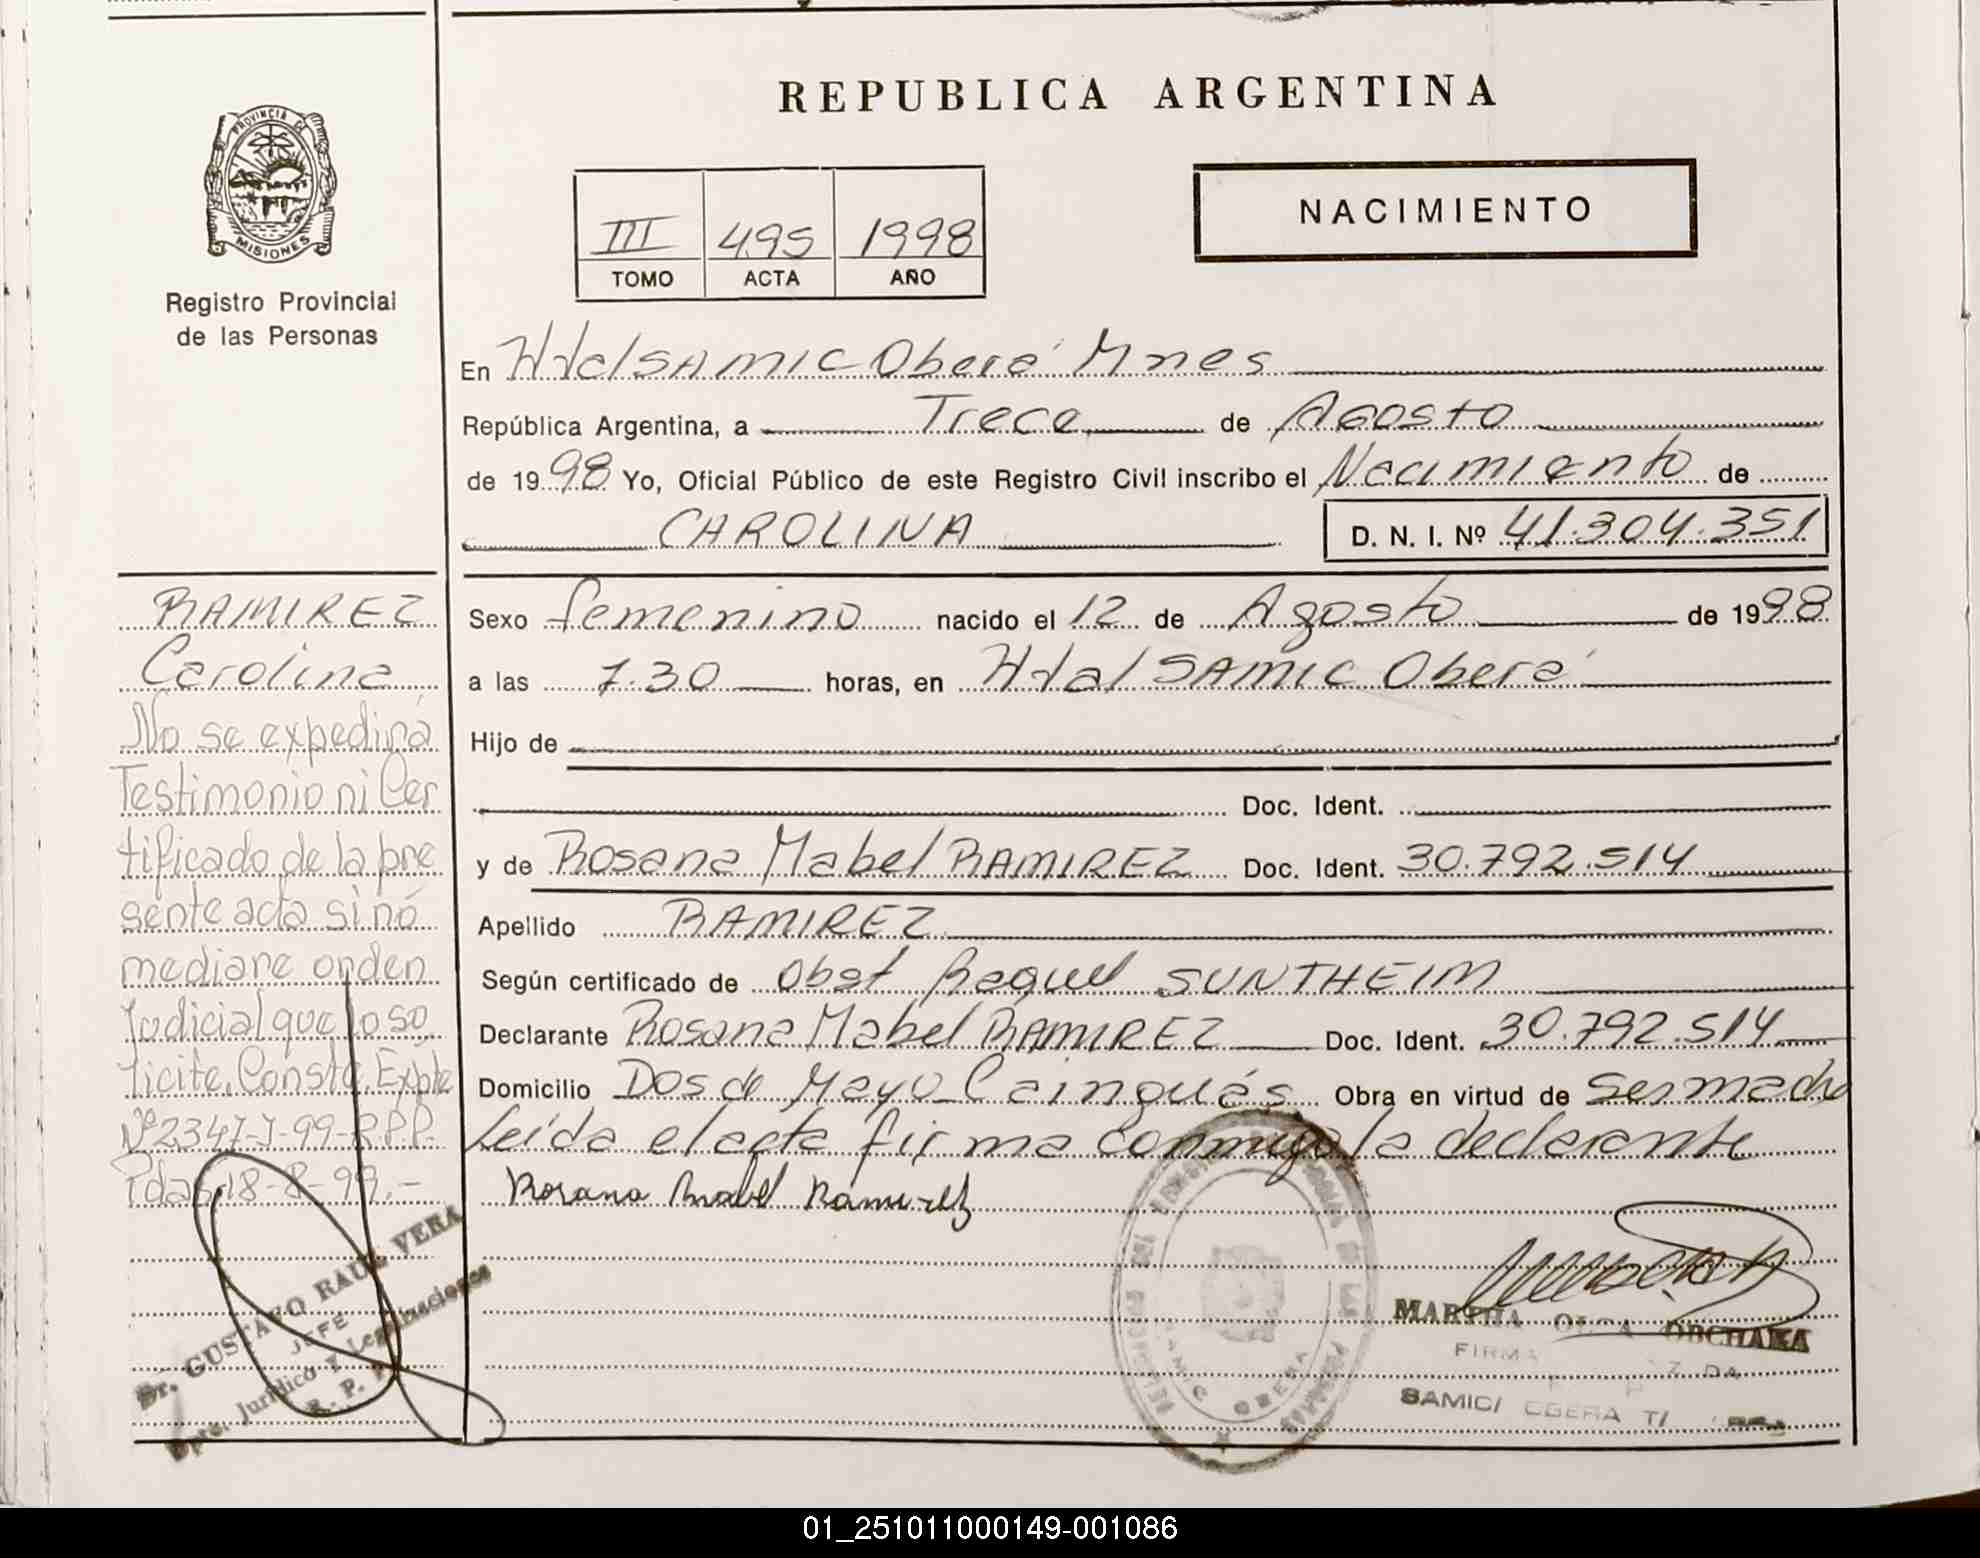 REPUBLICA ARGENTINA
PROVINCIA DE
MISIONES
Registro Provincial
de las Personas
III 495 1998
TOMO ACTA AÑO
NACIMIENTO
En Htal SAMIC Oberá Mnes
República Argentina, a Trece de Agosto
de 1998 Yo, Oficial Público de este Registro Civil inscribo el Nacimiento de
CAROLINA D. N. I. Nº 41.304.351
Sexo femenino nacido el 12 de Agosto de 1998
a las 7.30 horas, en Htal SAMIC Oberá
Hijo de
Doc. Ident.
y de Rosana Mabel RAMIREZ Doc. Ident. 30.792.514
Apellido RAMIREZ
Según certificado de Obst Raquel SUNTHEIM
Declarante Rosana Mabel RAMIREZ Doc. Ident. 30.792.514
Domicilio Dos de Mayo Cainguás Obra en virtud de ser madre
Leída el acta firma conmigo la declarante
Rosana Mabel Ramirez
RAMIREZ
Carolina
No se expedirá
Testimonio ni Cer
tificado de la pre
sente acta si nó
mediane orden
Judicial que lo so
licite. Consta. Expte
Nº2347-J-99-R.P.P.
Pdas, 18-8-99.-
Dr. GUSTAVO RAUL VERA
JEFE
Dpto. Jurídico y Legalizaciones
R. P. P.
MARTHA OLGA
FIRMA
SAMIC/ OBERA
SAMIC OBERA
01_251011000149-001086